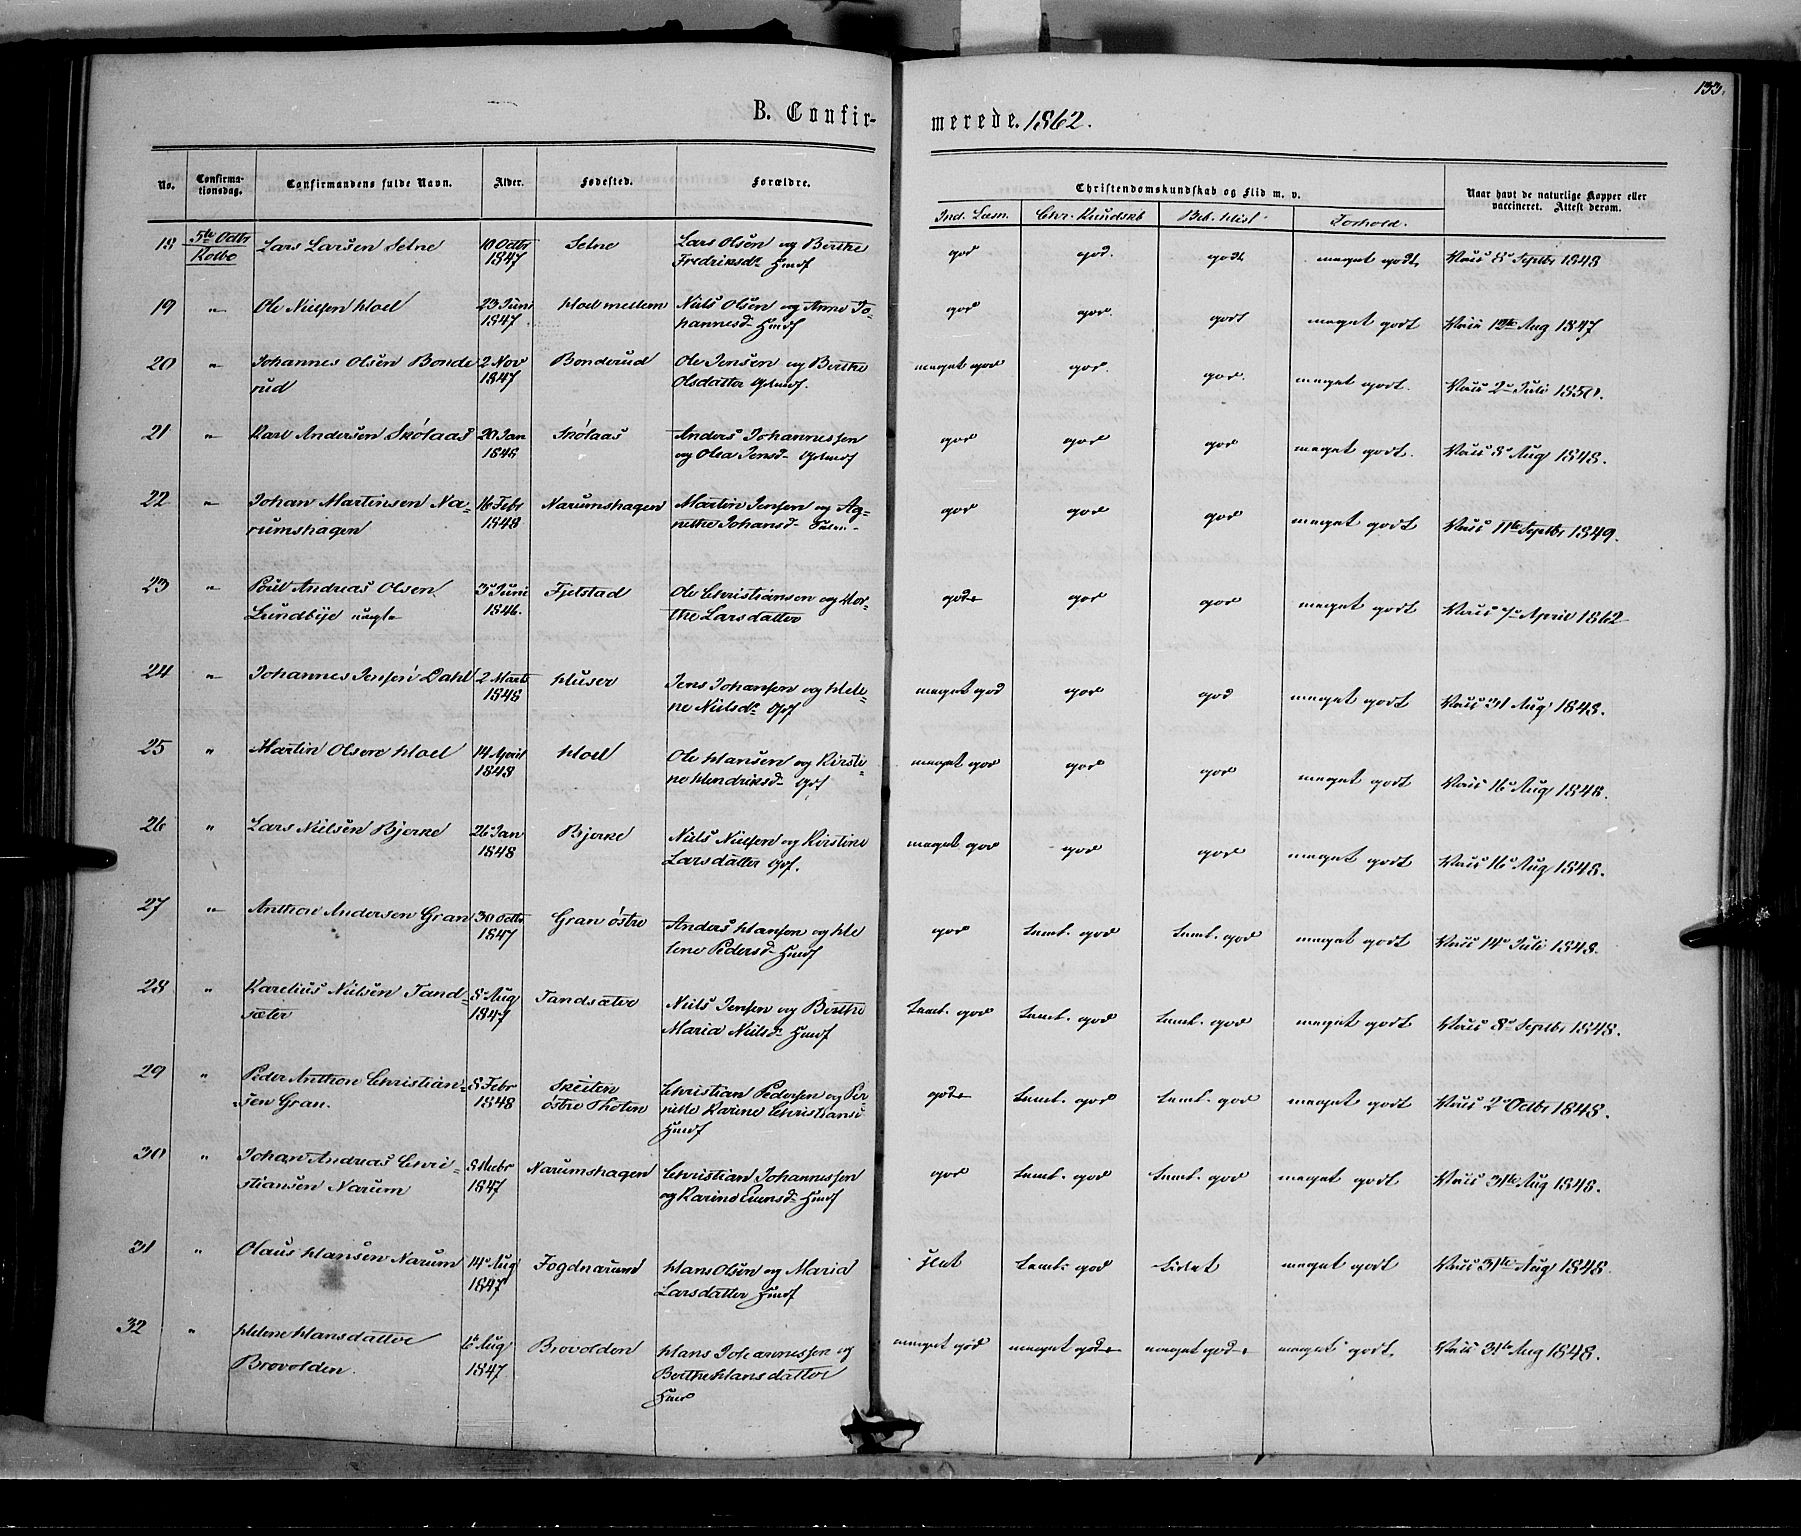 133.
B. Confirmerede. 1862.
No. Confirmationsdag. Confirmandens fulde Navn. Alder. Fødested. Forældre. Christendomskundskab og Flid m. v. Naar havt de naturlige Kopper eller vaccineret. Attest derom.
Ind. Læsn. Chr. Kundskb Bib. Hist Forhold.
18 5te Octbr Kolbo Lars Larsen Selne 10 Octbr 1847 Selne Lars Olsen og Berthe Fredriksd. god god. godt meget godt Vaxc 8 Septbr 1848
19 " Ole Nielsen Hoel 23 Juni 1847. Hoel mellem Niels Olsen og Anne Johannesd. god god. godt meget godt Aug 1847
20 " Johannes Olsen Bonderud 2 Nov 1847 Bonderud Ole Jensen og Berthe Olsdatter meget god god. god. meget godt. 2 Juli 1850.
21 " Karl Andersen Skölaas 20 Jan 1848 Skölaas Anders Johannessen og Olea Jensd. god god god meget godt. 8 Aug 1848.
22 " Johan Martinsen Narumshagen 16 Febr 1848 Narumshagen Martin Jensen og Agnethe Johansd. god god god meget godt 11te Septbr 1849.
23 " Poul Andreas Olsen Lundbye 3 Juni 1846. Fjelstad Ole Christiansen og Marthe Larsdatter god god god meget godt April 1862
24 " Johannes Jensen Dahl 2 Marts 1848 Huser Jens Johansen og Helene Nielsd. meget god god god meget godt 31 Aug 1848.
25 " Martin Olsen Hoel 14 April 1848 Hoel Ole Hansen og Kirstine Hendriksd. meget god god god meget godt 16 Aug 1848.
26 " Lars Nielsen Bjerke 26 Jan 1848 Bjerke Niels Nielsen og Kirstine Larsdatter meget god god god meget godt 16 Aug 1848.
27 " Anthon Andersen Gran 30 Octbr 1847 Gran östre Anders Hansen og Helene Pedersd. god Temt. god Temt. god meget godt 14 Juli 1848.
28 " Karelius Nielsen Tandsæter 8 Aug 1847 Tandsæter Niels Jensen og Berthe Maria Nielsd. Temt. god Temt. god Temt. god meget godt 8 Septbr 1848.
29 " Peder Anthon Christiansen Gran. 8 Febr 1848 Skeiten östre Thoten Christian Pedersen og Pernille Karine Christiansd. god Temt. god Temt. god meget godt 2 Octbr 1848.
30 " Johan Andreas Christiansen Narum 1847 Narumshagen Christian Johannessen og Karine god Temt. god Temt. god meget godt 31te Aug 1848.
31 " Olaus Hansen Narum 14 Aug 1847 Fogdnarum Hans Olsen og Maria Larsdatter Temt. god meget godt 31te Aug 1848
32 " Helene Hansdatter Brovolden. 6 Aug 1847 Brovolden Hans Johannessen og Berthe Hansdatter meget god meget god meget god meget godt. 31te Aug 1848.